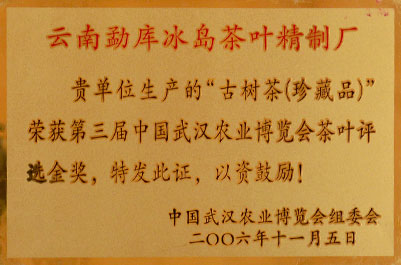 云南勐库冰岛茶叶精制厂
贵单位生产的“古树茶(珍藏品)”
荣获第三届中国武汉农业博览会茶叶评
选金奖，特发此证，以资鼓励！
中国武汉农业博览会组委会
二〇〇六年十一月五日